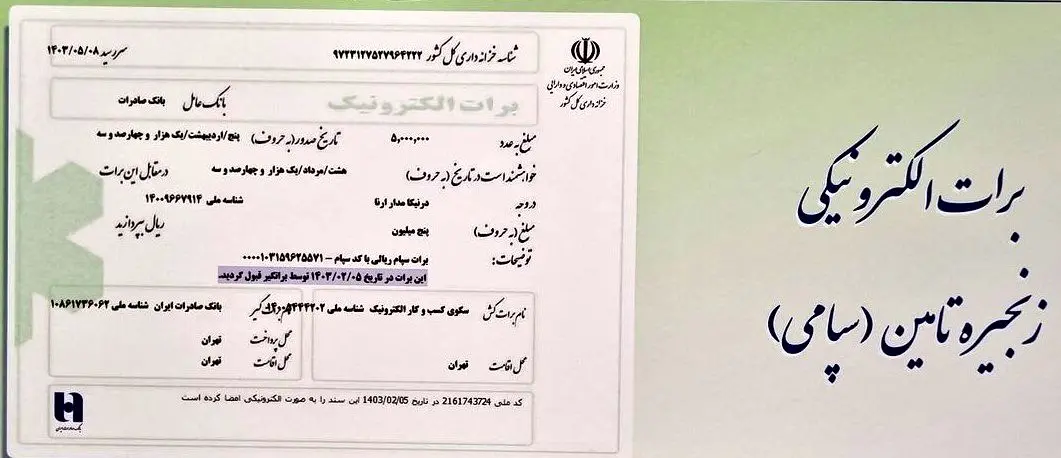 جمهوری اسلامی ایران
وزارت امور اقتصادی و دارایی
خزانه داری کل کشور
شناسه خزانه داری کل کشور ۹۷۲۳۱۲۷۵۲۷۹۶۴۲۲۲
سررسید ۱۴۰۳/۰۵/۰۸
برات الکترونیک
بانک عامل بانک صادرات
مبلغ به عدد ۵,۰۰۰,۰۰۰ تاریخ صدور(به حروف) پنج/اردیبهشت/یک هزار و چهارصد و سه
خواهشمند است در تاریخ (به حروف) هشت/مرداد/یک هزار و چهارصد و سه در مقابل این برات
در وجه درنیکا مدار ارنا شناسه ملی ۱۴۰۰۹۶۶۷۹۱۴
مبلغ (به حروف) پنج میلیون ریال بپردازید
توضیحات: برات سپام ریالی با کد سپام – ۰۰۰۰۱۰۳۱۵۹۶۲۵۵۷۱
این برات در تاریخ ۱۴۰۳/۰۲/۰۵ توسط براتگیر قبول گردید.
نام برات کش سکوی کسب و کار الکترونیک شناسه ملی
محل اقامت تهران
بانک صادرات ایران شناسه ملی ۱۰۸۶۱۷۳۶۰۶۲
محل پرداخت تهران
محل اقامت تهران
کد ملی 2161743724 در تاریخ 1403/02/05 این سند را به صورت الکترونیکی امضا کرده است
بانک صادرات ایران
برات الکترونیکی
زنجیره تامین (سپامی)